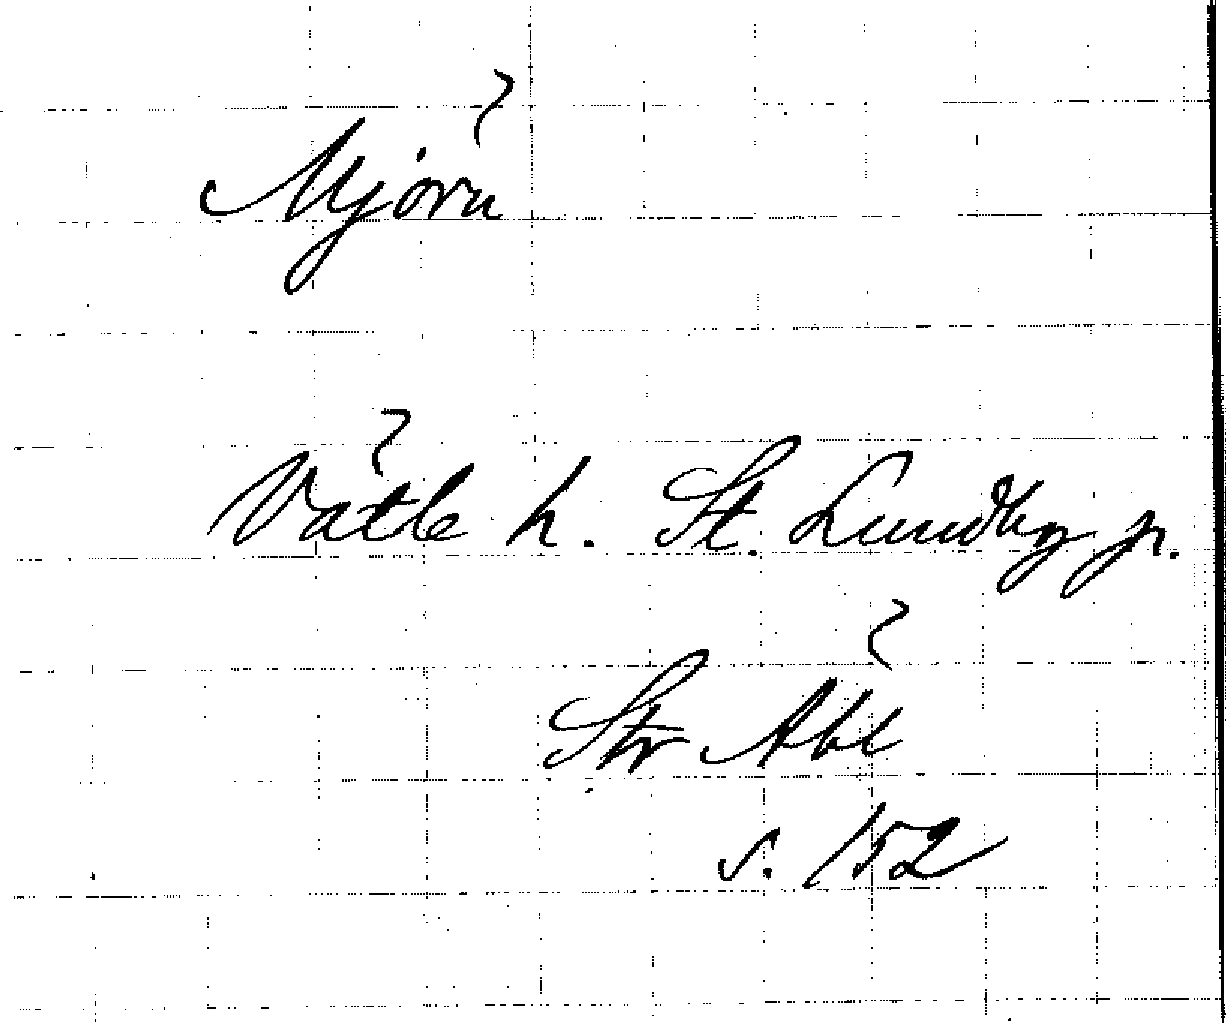 Mjörn
Vätle h. St. Lundby sn.
Str Abl
s. 152